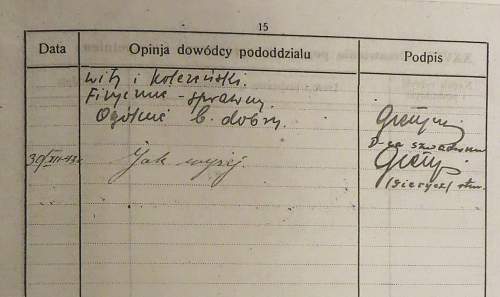 15
Data Opinja dowódcy pododdziału Podpis
wity i koleżeński.
Fizycznie - sprawny.
Ogólnie b. dobry.
D-ca szwadronu
Jak wyżej.